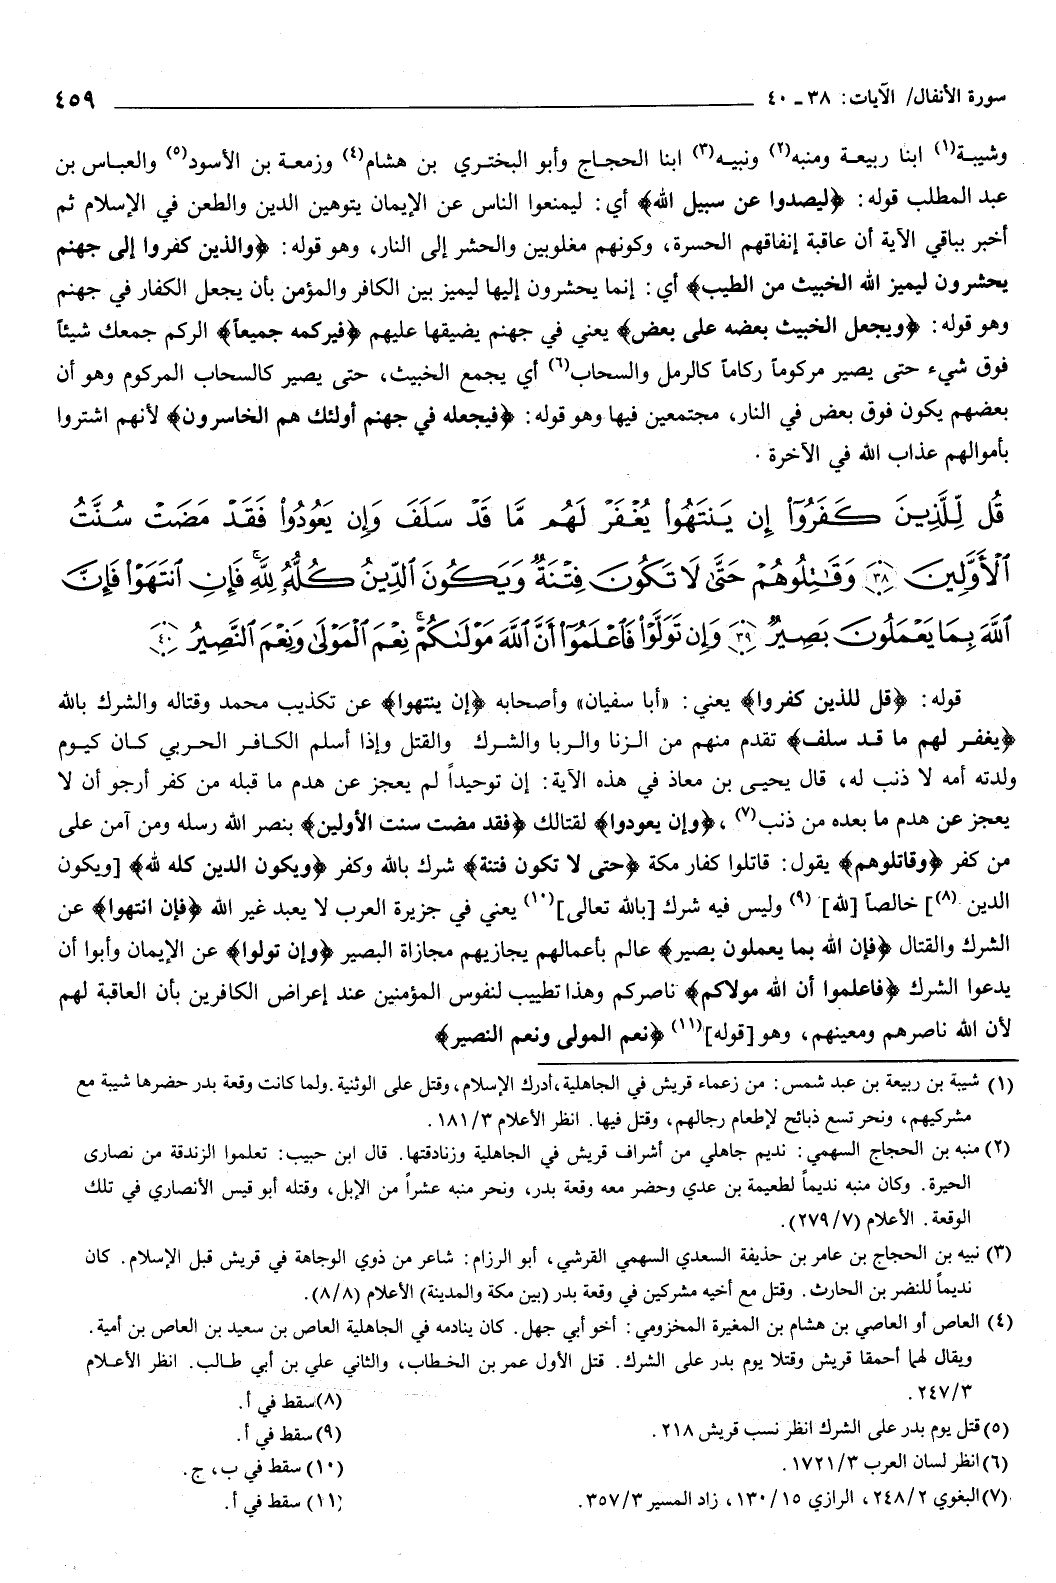 سورة الأنفال/ الآيات: ٣٨ ـ ٤٠ ٤٥٩
وشيبـة(١) ابنا ربيعـة ومنبه(٢) ونبيـه(٣) ابنا الحجـاج وأبو البختـري بن هشام(٤) وزمعـة بن الأسود(٥) والعبـاس بن
عبد المطلب قوله: ﴿ليصدوا عن سبيل الله﴾ أي: ليمنعوا الناس عن الإيمان يتوهين الدين والطعن في الإسلام ثم
أخبر بباقي الآية أن عاقبة إنفاقهم الحسرة، وكونهم مغلوبين والحشر إلى النار، وهو قوله: ﴿والذين كفروا إلى جهنم
يحشرون ليميز الله الخبيث من الطيب﴾ أي: إنما يحشرون إليها ليميز بين الكافر والمؤمن بأن يجعل الكفار في جهنم
وهو قوله: ﴿ويجعل الخبيث بعضه على بعض﴾ يعني في جهنم يضيقها عليهم ﴿فيركمه جميعاً﴾ الركم جمعك شيئاً
فوق شيء حتى يصير مركوماً ركاماً كالرمل والسحاب(٦) أي يجمع الخبيث، حتى يصير كالسحاب المركوم وهو أن
بعضهم يكون فوق بعض في النار، مجتمعين فيها وهو قوله: ﴿فيجعله في جهنم أولئك هم الخاسرون﴾ لأنهم اشتروا
بأموالهم عذاب الله في الآخرة.
قُل لِّلَّذِينَ كَفَرُوٓاْ إِن يَنتَهُواْ يُغْفَرْ لَهُم مَّا قَدْ سَلَفَ وَإِن يَعُودُواْ فَقَدْ مَضَتْ سُنَّتُ
ٱلْأَوَّلِينَ ٣٨ وَقَـٰتِلُوهُمْ حَتَّىٰ لَا تَكُونَ فِتْنَةٌ وَيَكُونَ ٱلدِّينُ كُلُّهُۥ لِلَّهِۚ فَإِنِ ٱنتَهَوْاْ فَإِنَّ
ٱللَّهَ بِمَا يَعْمَلُونَ بَصِيرٌ ٣٩ وَإِن تَوَلَّوْاْ فَٱعْلَمُوٓاْ أَنَّ ٱللَّهَ مَوْلَىٰكُمْۚ نِعْمَ ٱلْمَوْلَىٰ وَنِعْمَ ٱلنَّصِيرُ ٤٠
قوله: ﴿قل للذين كفروا﴾ يعني: «أبا سفيان» وأصحابه ﴿إن ينتهوا﴾ عن تكذيب محمد وقتاله والشرك بالله
﴿يغفـر لهم ما قـد سلف﴾ تقدم منهم من الـزنا والـربا والشـرك والقتل وإذا أسلم الكـافـر الحـربي كـان كيـوم
ولدته أمه لا ذنب له، قال يحيـى بن معاذ في هذه الآية: إن توحيداً لم يعجز عن هدم ما قبله من كفر أرجو أن لا
يعجز عن هدم ما بعده من ذنب(٧)، ﴿وإن يعودوا﴾ لقتالك ﴿فقد مضت سنت الأولين﴾ بنصر الله رسله ومن آمن على
من كفر ﴿وقاتلوهم﴾ يقول: قاتلوا كفار مكة ﴿حتى لا تكون فتنة﴾ شرك بالله وكفر ﴿ويكون الدين كله لله﴾ [ويكون
الدين (٨)] خالصاً [لله] (٩) وليس فيه شرك [بالله تعالى](١٠) يعني في جزيرة العرب لا يعبد غير الله ﴿فإن انتهوا﴾ عن
الشرك والقتال ﴿فإن الله بما يعملون بصير﴾ عالم بأعمالهم يجازيهم مجازاة البصير ﴿وإن تولوا﴾ عن الإيمان وأبوا أن
يدعوا الشرك ﴿فاعلموا أن الله مولاكم﴾ ناصركم وهذا تطييب لنفوس المؤمنين عند إعراض الكافرين بأن العاقبة لهم
لأن الله ناصرهم ومعينهم، وهو [قوله](١١) ﴿نعم المولى ونعم النصير﴾
(١) شيبة بن ربيعة بن عبد شمس: من زعماء قريش في الجاهلية، أدرك الإسلام، وقتل على الوثنية. ولما كانت وقعة بدر حضرها شيبة مع
مشركيهم، ونحر تسع ذبائح لإطعام رجالهم، وقتل فيها. انظر الأعلام ٣/١٨١.
(٢) منبه بن الحجاج السهمي: نديم جاهلي من أشراف قريش في الجاهلية وزنادقتها. قال ابن حبيب: تعلموا الزندقة من نصارى
الحيرة. وكان منبه نديماً لطعيمة بن عدي وحضر معه وقعة بدر، ونحر منبه عشراً من الإبل، وقتله أبو قيس الأنصاري في تلك
الوقعة. الأعلام (٧/٢٧٩).
(٣) نبيه بن الحجاج بن عامر بن حذيفة السعدي السهمي القرشي، أبو الرزام: شاعر من ذوي الوجاهة في قريش قبل الإسلام. كان
نديماً للنضر بن الحارث. وقتل مع أخيه مشركين في وقعة بدر (بين مكة والمدينة) الأعلام (٨/٨).
(٤) العاص أو العاصي بن هشام بن المغيرة المخزومي: أخو أبي جهل. كان ينادمه في الجاهلية العاص بن سعيد بن العاص بن أمية.
ويقال لهما أحمقا قريش وقتلا يوم بدر على الشرك. قتل الأول عمر بن الخطاب، والثاني علي بن أبي طالب. انظر الأعـلام
٣/٢٤٧.
(٥) قتل يوم بدر على الشرك انظر نسب قريش ٢١٨.
(٦) انظر لسان العرب ٣/١٧٢١.
(٧) البغوي ٢/٢٤٨، الرازي ١٥/١٣٠، زاد المسير ٣/٣٥٧.
(٨) سقط في أ.
(٩) سقط في أ.
(١٠) سقط في ب، ج.
(١١) سقط في أ.